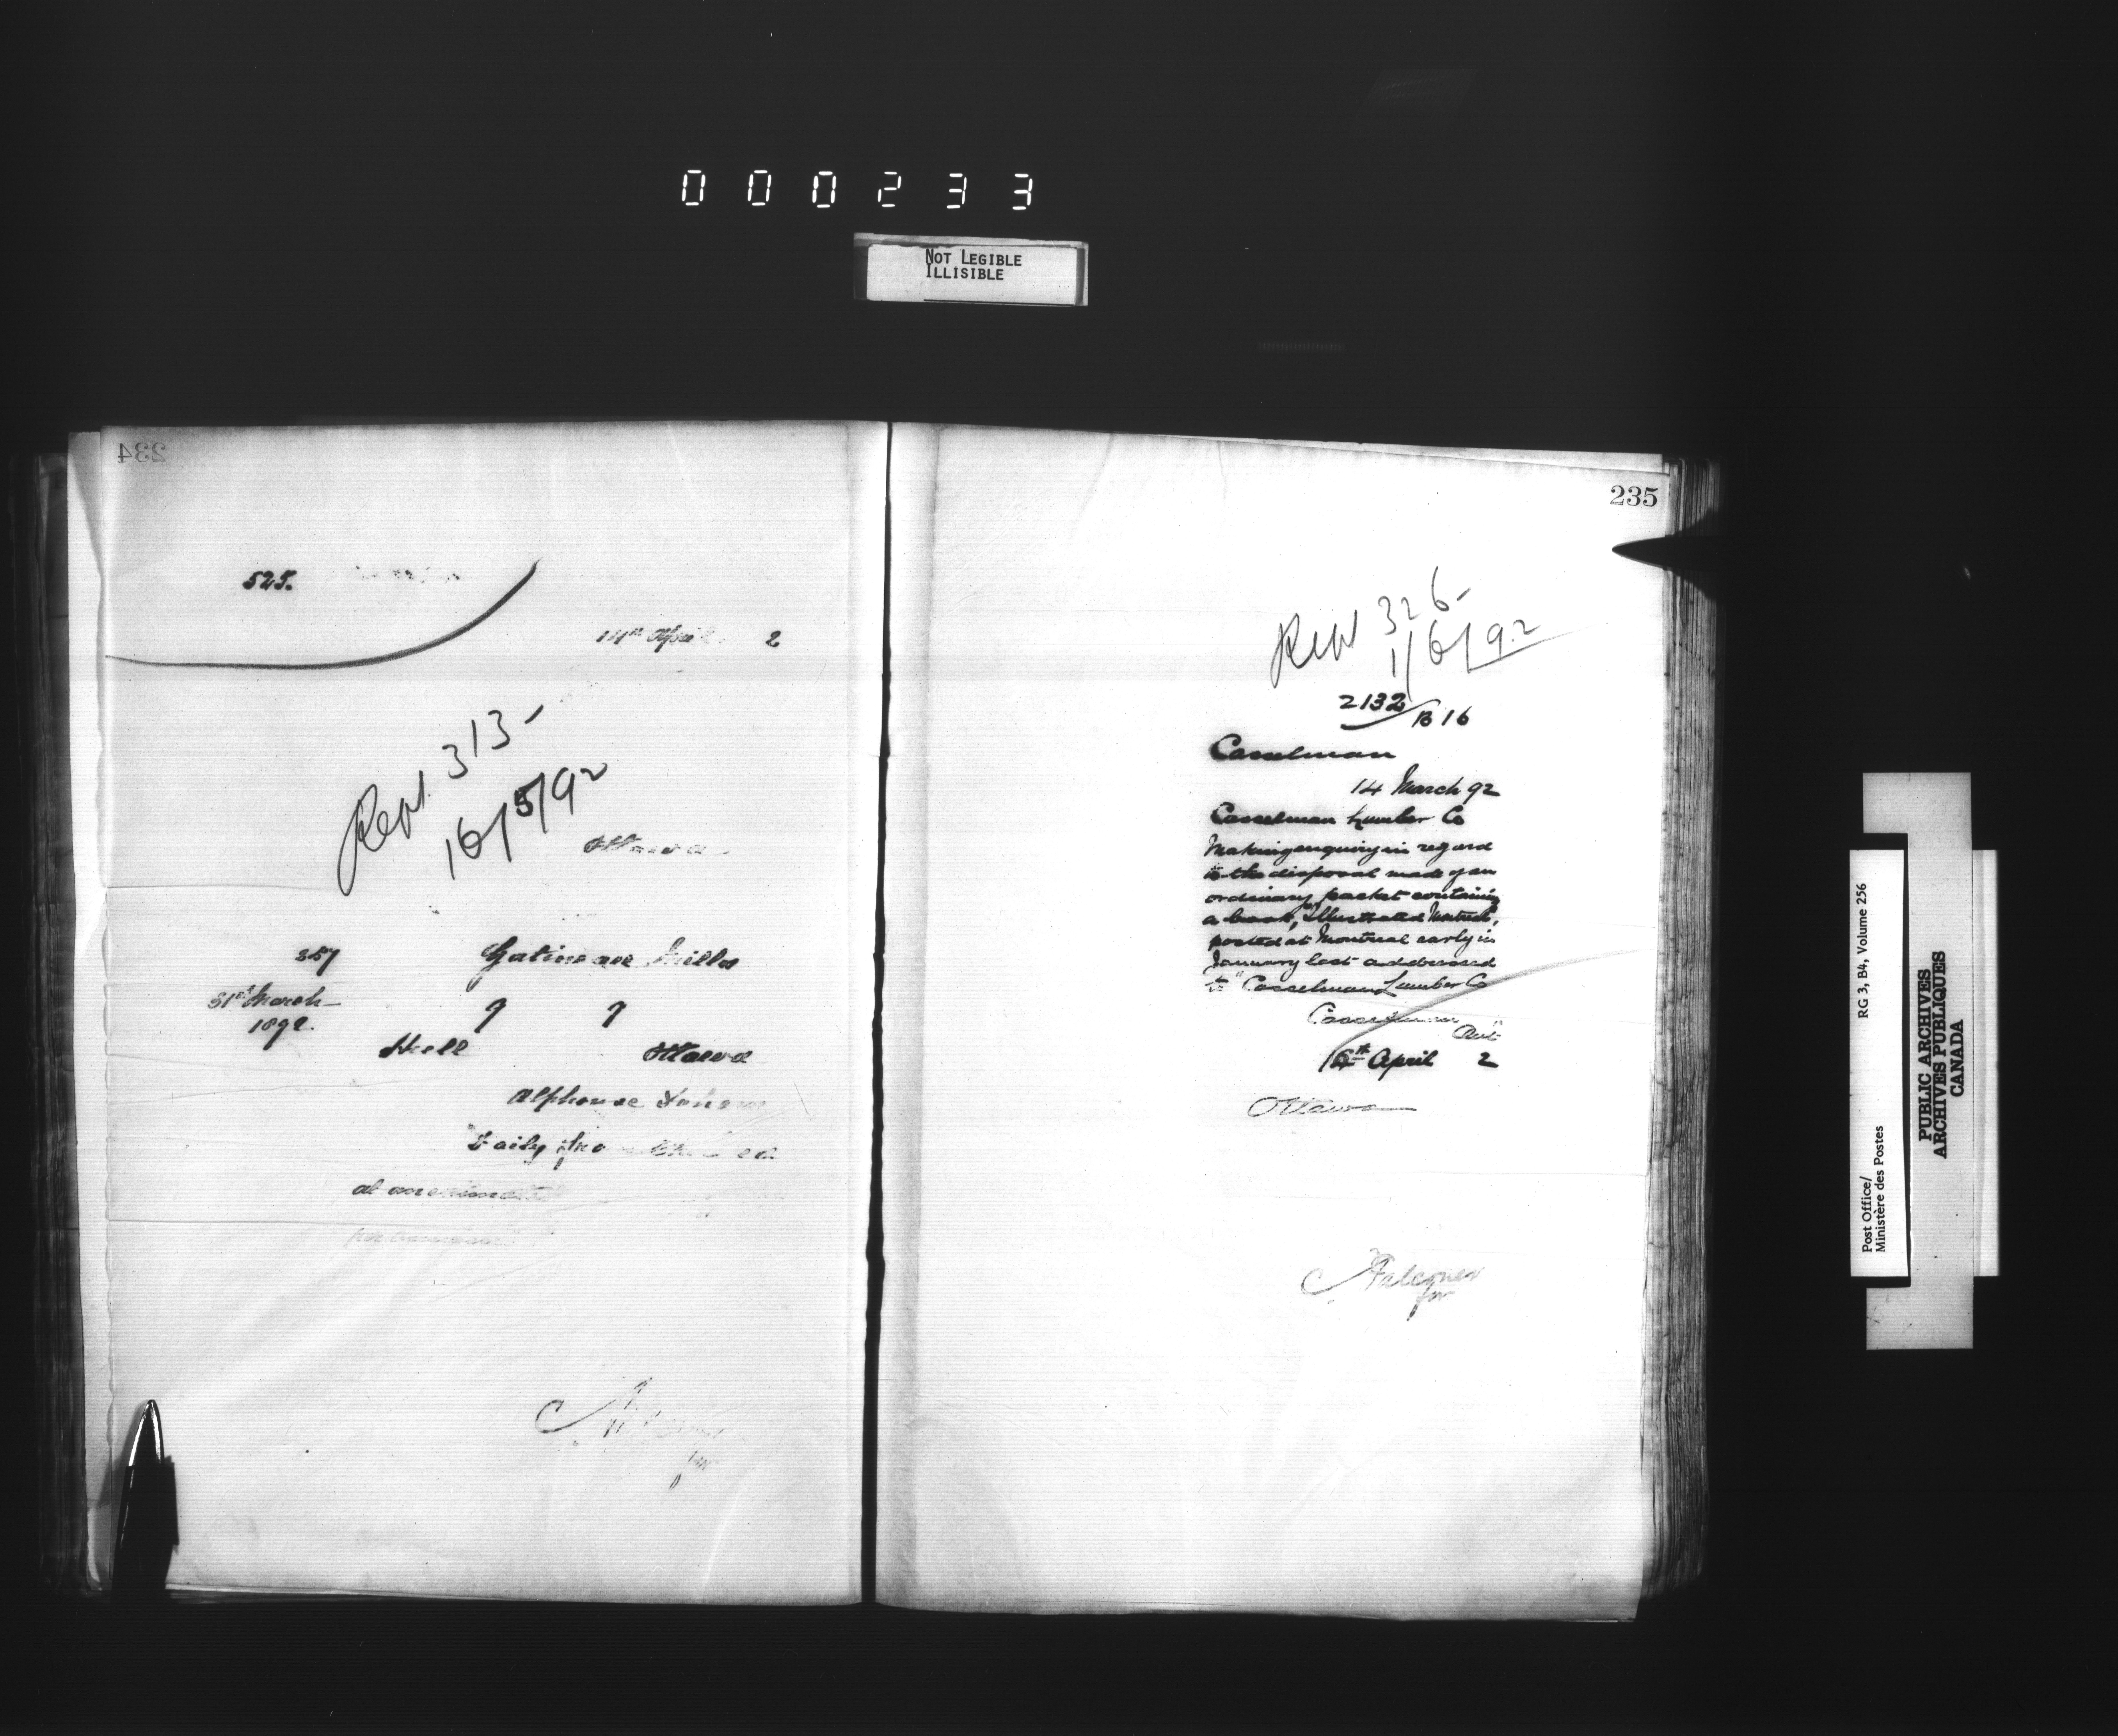 000233
NOT LEGIBLE
ILLISIBLE
234
525.
14th April 2
Rept. 313-
16/5/92
Ottawa
357
Gatineau Mills
31st March
1892.
9 9
Hull Ottawa
Alphonse
Daily
at an estimated
per annum
235
Rept 326-
1/6/92
2132/B16
Casselman
14 March 92
Casselman Lumber Co
Making enquiry in regard
to the disposal made of an
ordinary packet containing
a book, "Illustrated
posted at Montreal early in
January last addressed
to "Casselman Lumber Co
Casselman
Ont"
16th April 2
Ottawa
Falconer
for
Post Office/
Ministère des Postes
RG 3, B4, Volume 256
PUBLIC ARCHIVES
ARCHIVES PUBLIQUES
CANADA